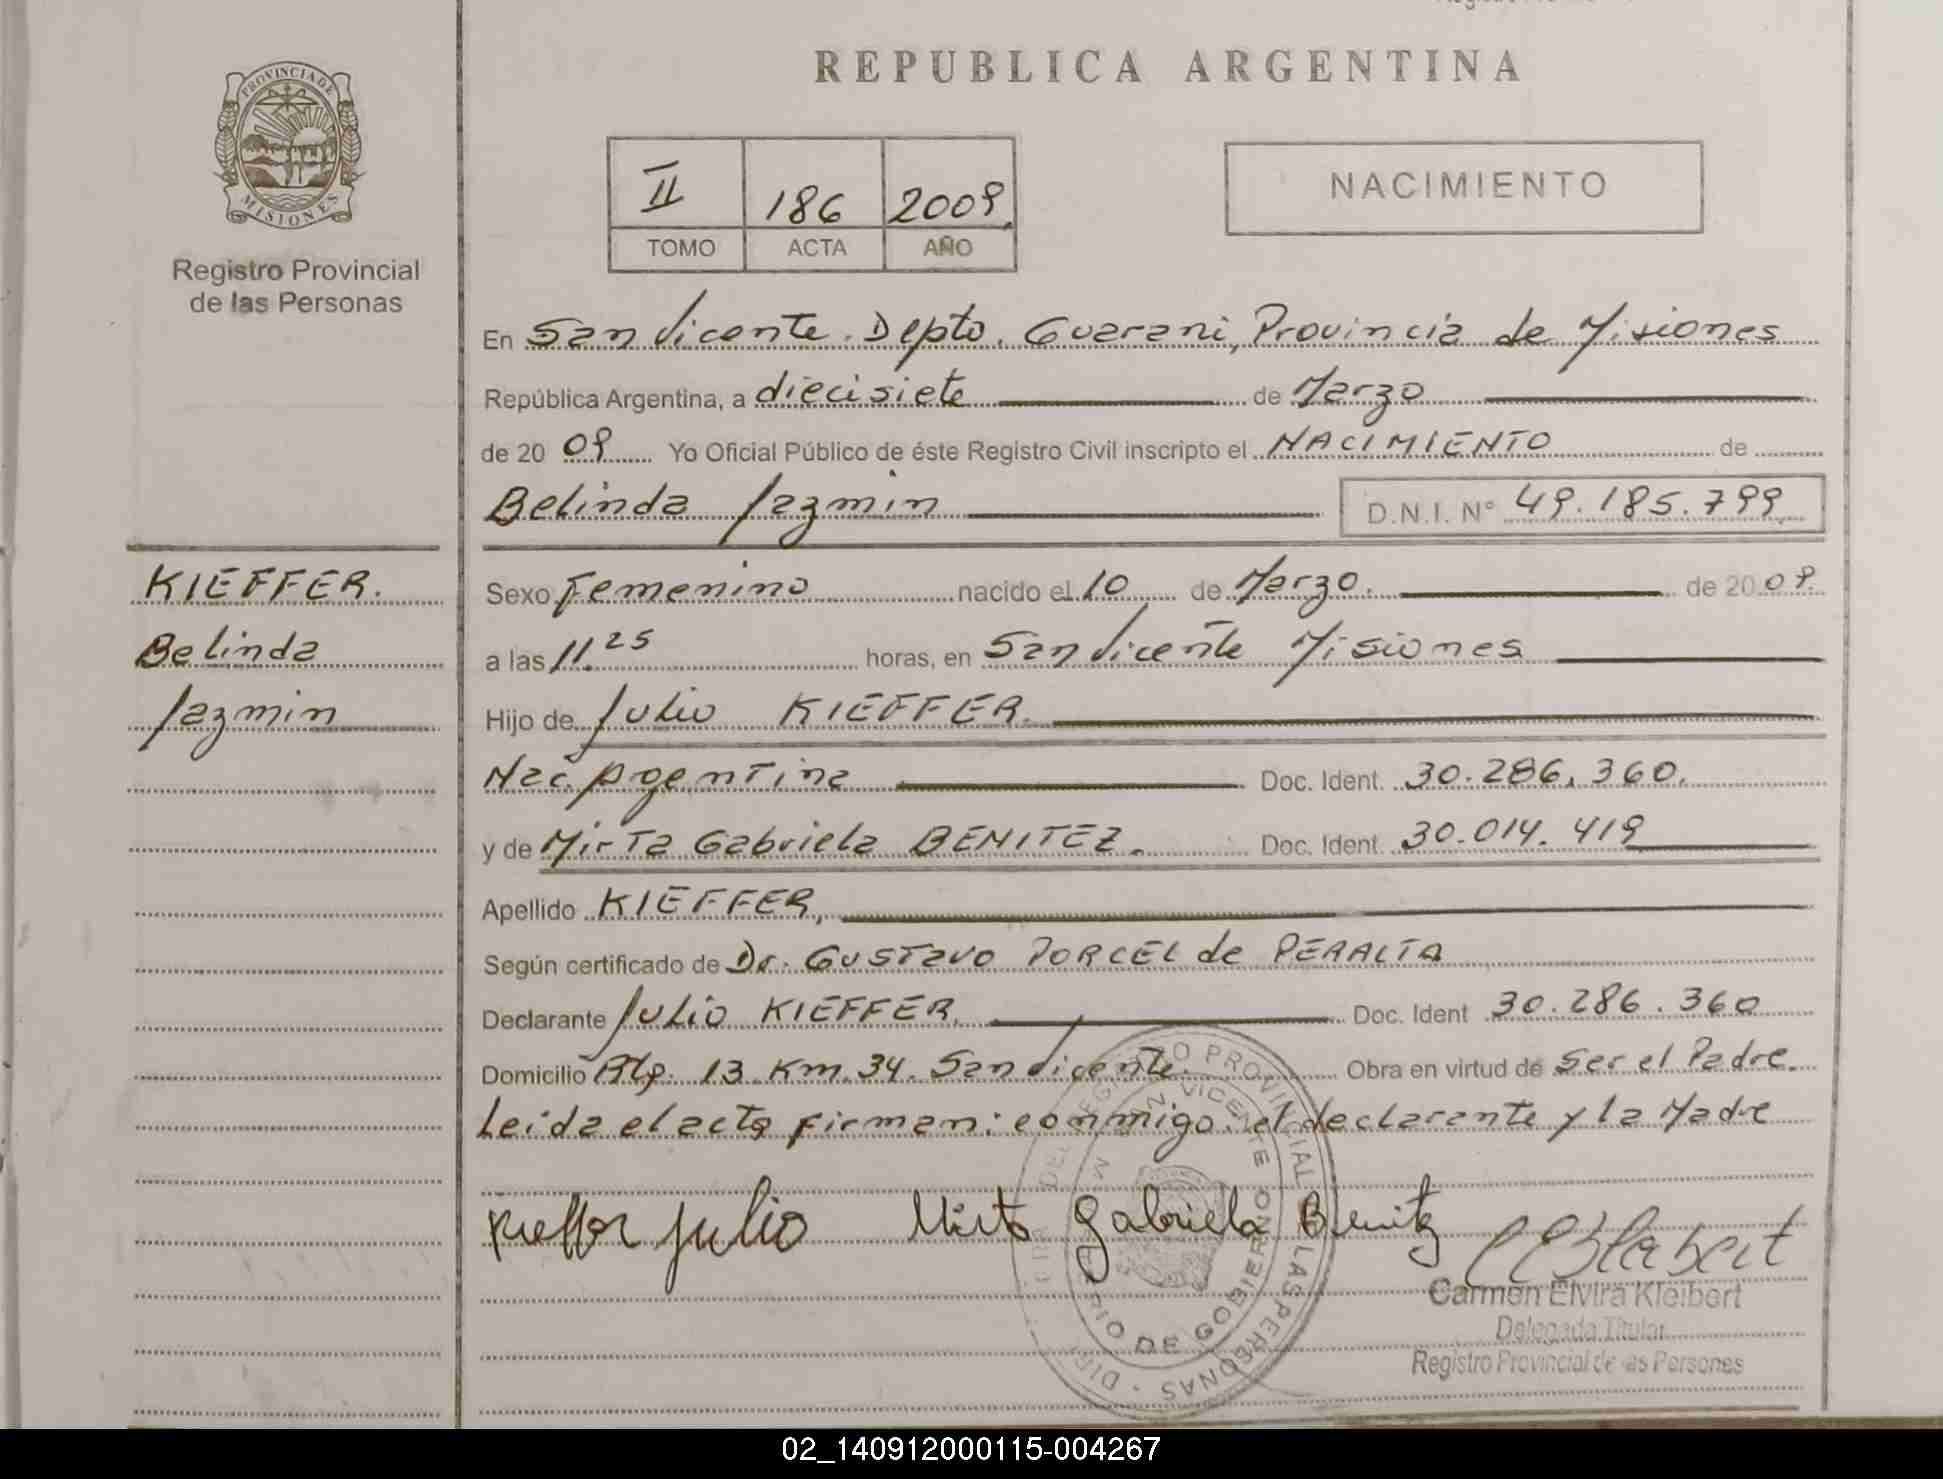 REPUBLICA ARGENTINA
PROVINCIA DE MISIONES
Registro Provincial
de las Personas
II 186 2009
TOMO ACTA AÑO
NACIMIENTO
En San Vicente. Depto. Guarani, Provincia de Misiones
República Argentina, a diecisiete de Marzo
de 2009 Yo Oficial Público de éste Registro Civil inscripto el NACIMIENTO de
Belinda Jazmin D.N.I. N° 49.185.799
KIEFFER.
Belinda
Jazmin
Sexo Femenino nacido el 10 de Marzo. de 2009.
a las 11.25 horas, en San Vicente Misiones
Hijo de Julio KIEFFER.
Nac. Argentina Doc. Ident. 30.286.360.
y de Mirta Gabriela BENITEZ. Doc. Ident. 30.014.419
Apellido KIEFFER,
Según certificado de Dr. GUSTAVO PORCEL de PERALTA
Declarante Julio KIEFFER. Doc. Ident 30.286.360
Domicilio 13. Km. 34. San Vicente. Obra en virtud de Ser el Padre.
Leida el acta firman: conmigo. el declarante y la Madre
Kieffer Julio Mirta Gabriela Benitez
Carmen Elvira Kleibert
Delegada Titular
Registro Provincial de las Personas
02_140912000115-004267